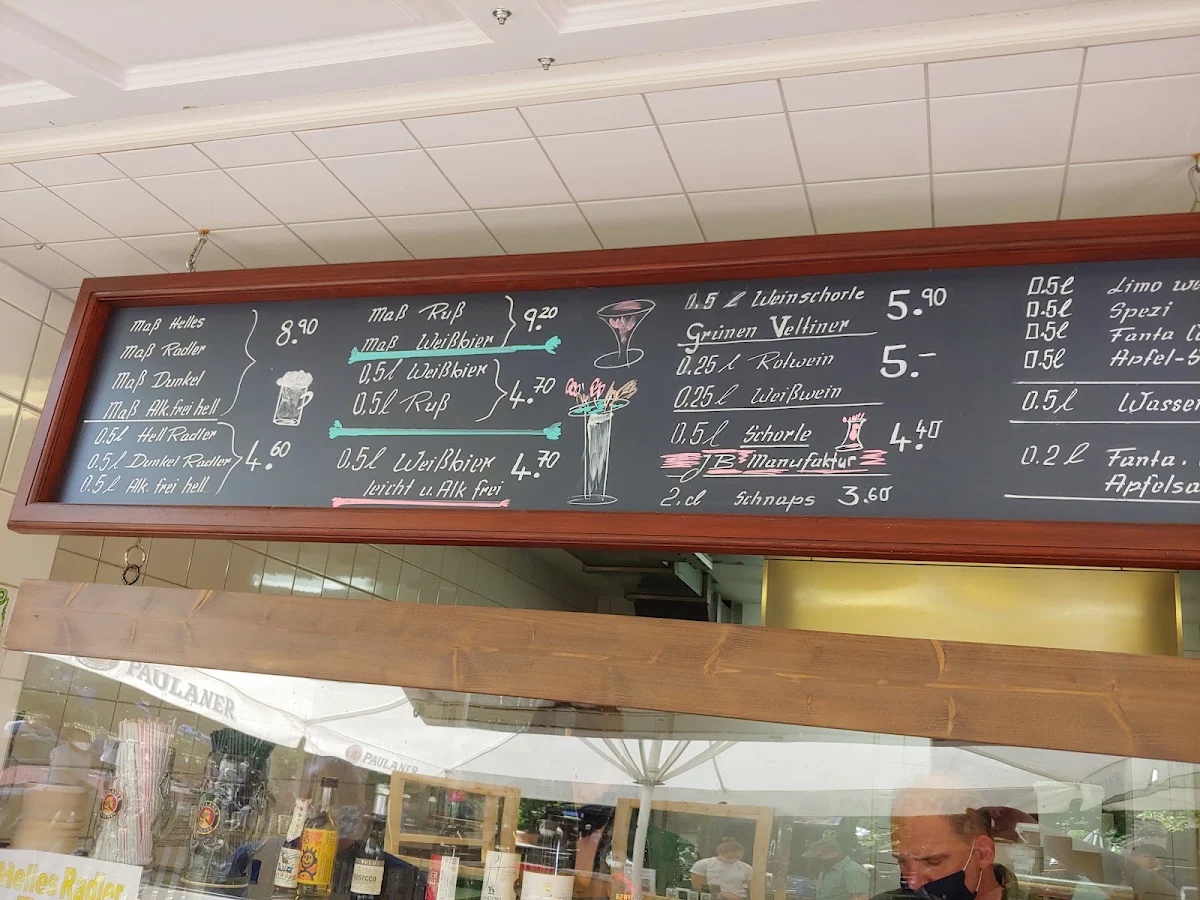 Maß Helles
Maß Radler
8.90
Maß Dunkel
Maß Alk.frei hell
0.5l Hell Radler
0.5l Dunkel Radler
4.60
0.5l Alk. frei hell
Maß Ruß
9.20
Maß Weißbier
0,5l Weißbier
4.70
0.5l Ruß
0.5l Weißbier
4.70
leicht u. Alk frei
0.5 l Weinschorle 5.90
Grünen Veltiner
0.25 l Rotwein 5.-
0.25l Weißwein
0.5l Schorle 4.40
JB Manufaktur
2.cl Schnaps 3.60
0.5l Limo
0.5l Spezi
0.5l Fanta
0.5l Apfel-S
0.5l Wasser
0.2l Fanta.
Apfelsa
PAULANER
PAULANER
Helles Radler